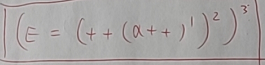 (E = (++(α++)¹)²)³